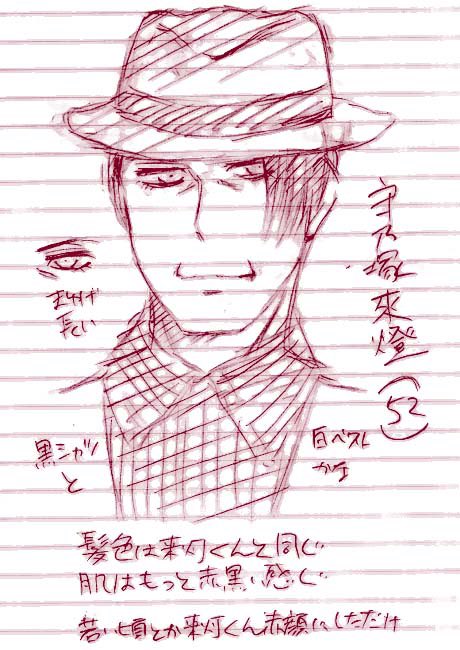 守乃塚來燈(52)
まつげ
長い
黒シャツ
と
白ベスト
かな
髪色は来灯くんと同じ
肌はもっと赤黒い感じ
若い頃とか来灯くん赤顔にしただけ